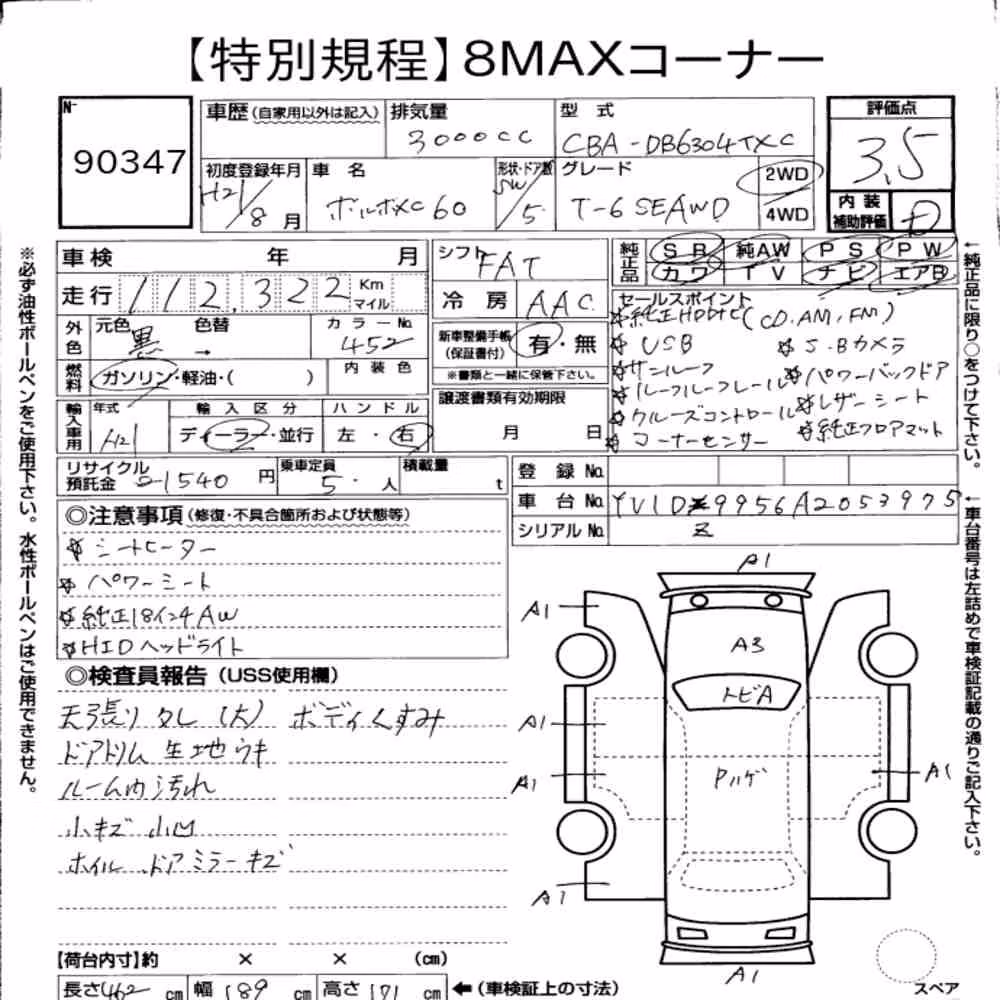 【特別規程】8MAXコーナー
No. 90347
車歴(自家用以外は記入) 排気量 3000cc 型式 CBA-DB6304TXC 評価点 3.5
初度登録年月 H21/8月 車名 ボルボXC60 形状・ドア数 SW/5 グレード T-6 SEAWD 2WD 4WD
内装補助評価 D
車検 年 月
走行 112,322 Km マイル
シフト FAT
冷房 AAC
純正品 SR 純AW PS PW
カワ TV ナビ エアB
外色 元色 黒 色替 → カラーNo. 452
燃料 ガソリン・軽油・( ) 内装色
新車整備手帳(保証書付) 有・無
※書類と一緒に保管下さい。
セールスポイント
☆純正HDDナビ(CD.AM.FM)
☆USB ☆S.Bカメラ
☆サンルーフ
☆ルーフルーフレール ☆パワーバックドア
☆クルーズコントロール ☆レザーシート
☆コーナーセンサー ☆純正フロアマット
輸入車用 年式 H21 輸入区分 ディーラー・並行 ハンドル 左・右
譲渡書類有効期限 月 日
リサイクル預託金 21540円 乗車定員 5人 積載量 t
登録No.
車台No. YV1DZ9956A2053975
シリアルNo. Z
◎注意事項(修復・不具合箇所および状態等)
☆シートヒーター
☆パワーシート
☆純正18インチAW
☆HIDヘッドライト
◎検査員報告(USS使用欄)
天張りタレ(大) ボディくすみ
ドアトリム生地ウキ
ルーム内汚れ
小キズ 小凹
ホイル.ドアミラーキズ
A1
A1
A3
トビA
A1
A1
Pハゲ
A1
A1
A1
スペア
【荷台内寸】約 × × (cm)
長さ462cm 幅189cm 高さ171cm ←(車検証上の寸法)
※必ず油性ボールペンをご使用下さい。水性ボールペンはご使用できません。
←純正品に限り○をつけて下さい。
←車台番号は左詰めで車検証記載の通りご記入下さい。